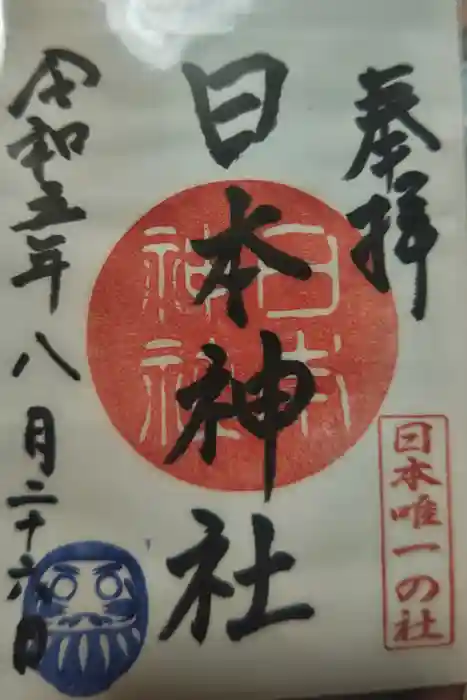 奉拝
日本神社
日本神社
令和五年八月二十六日
日本唯一の社